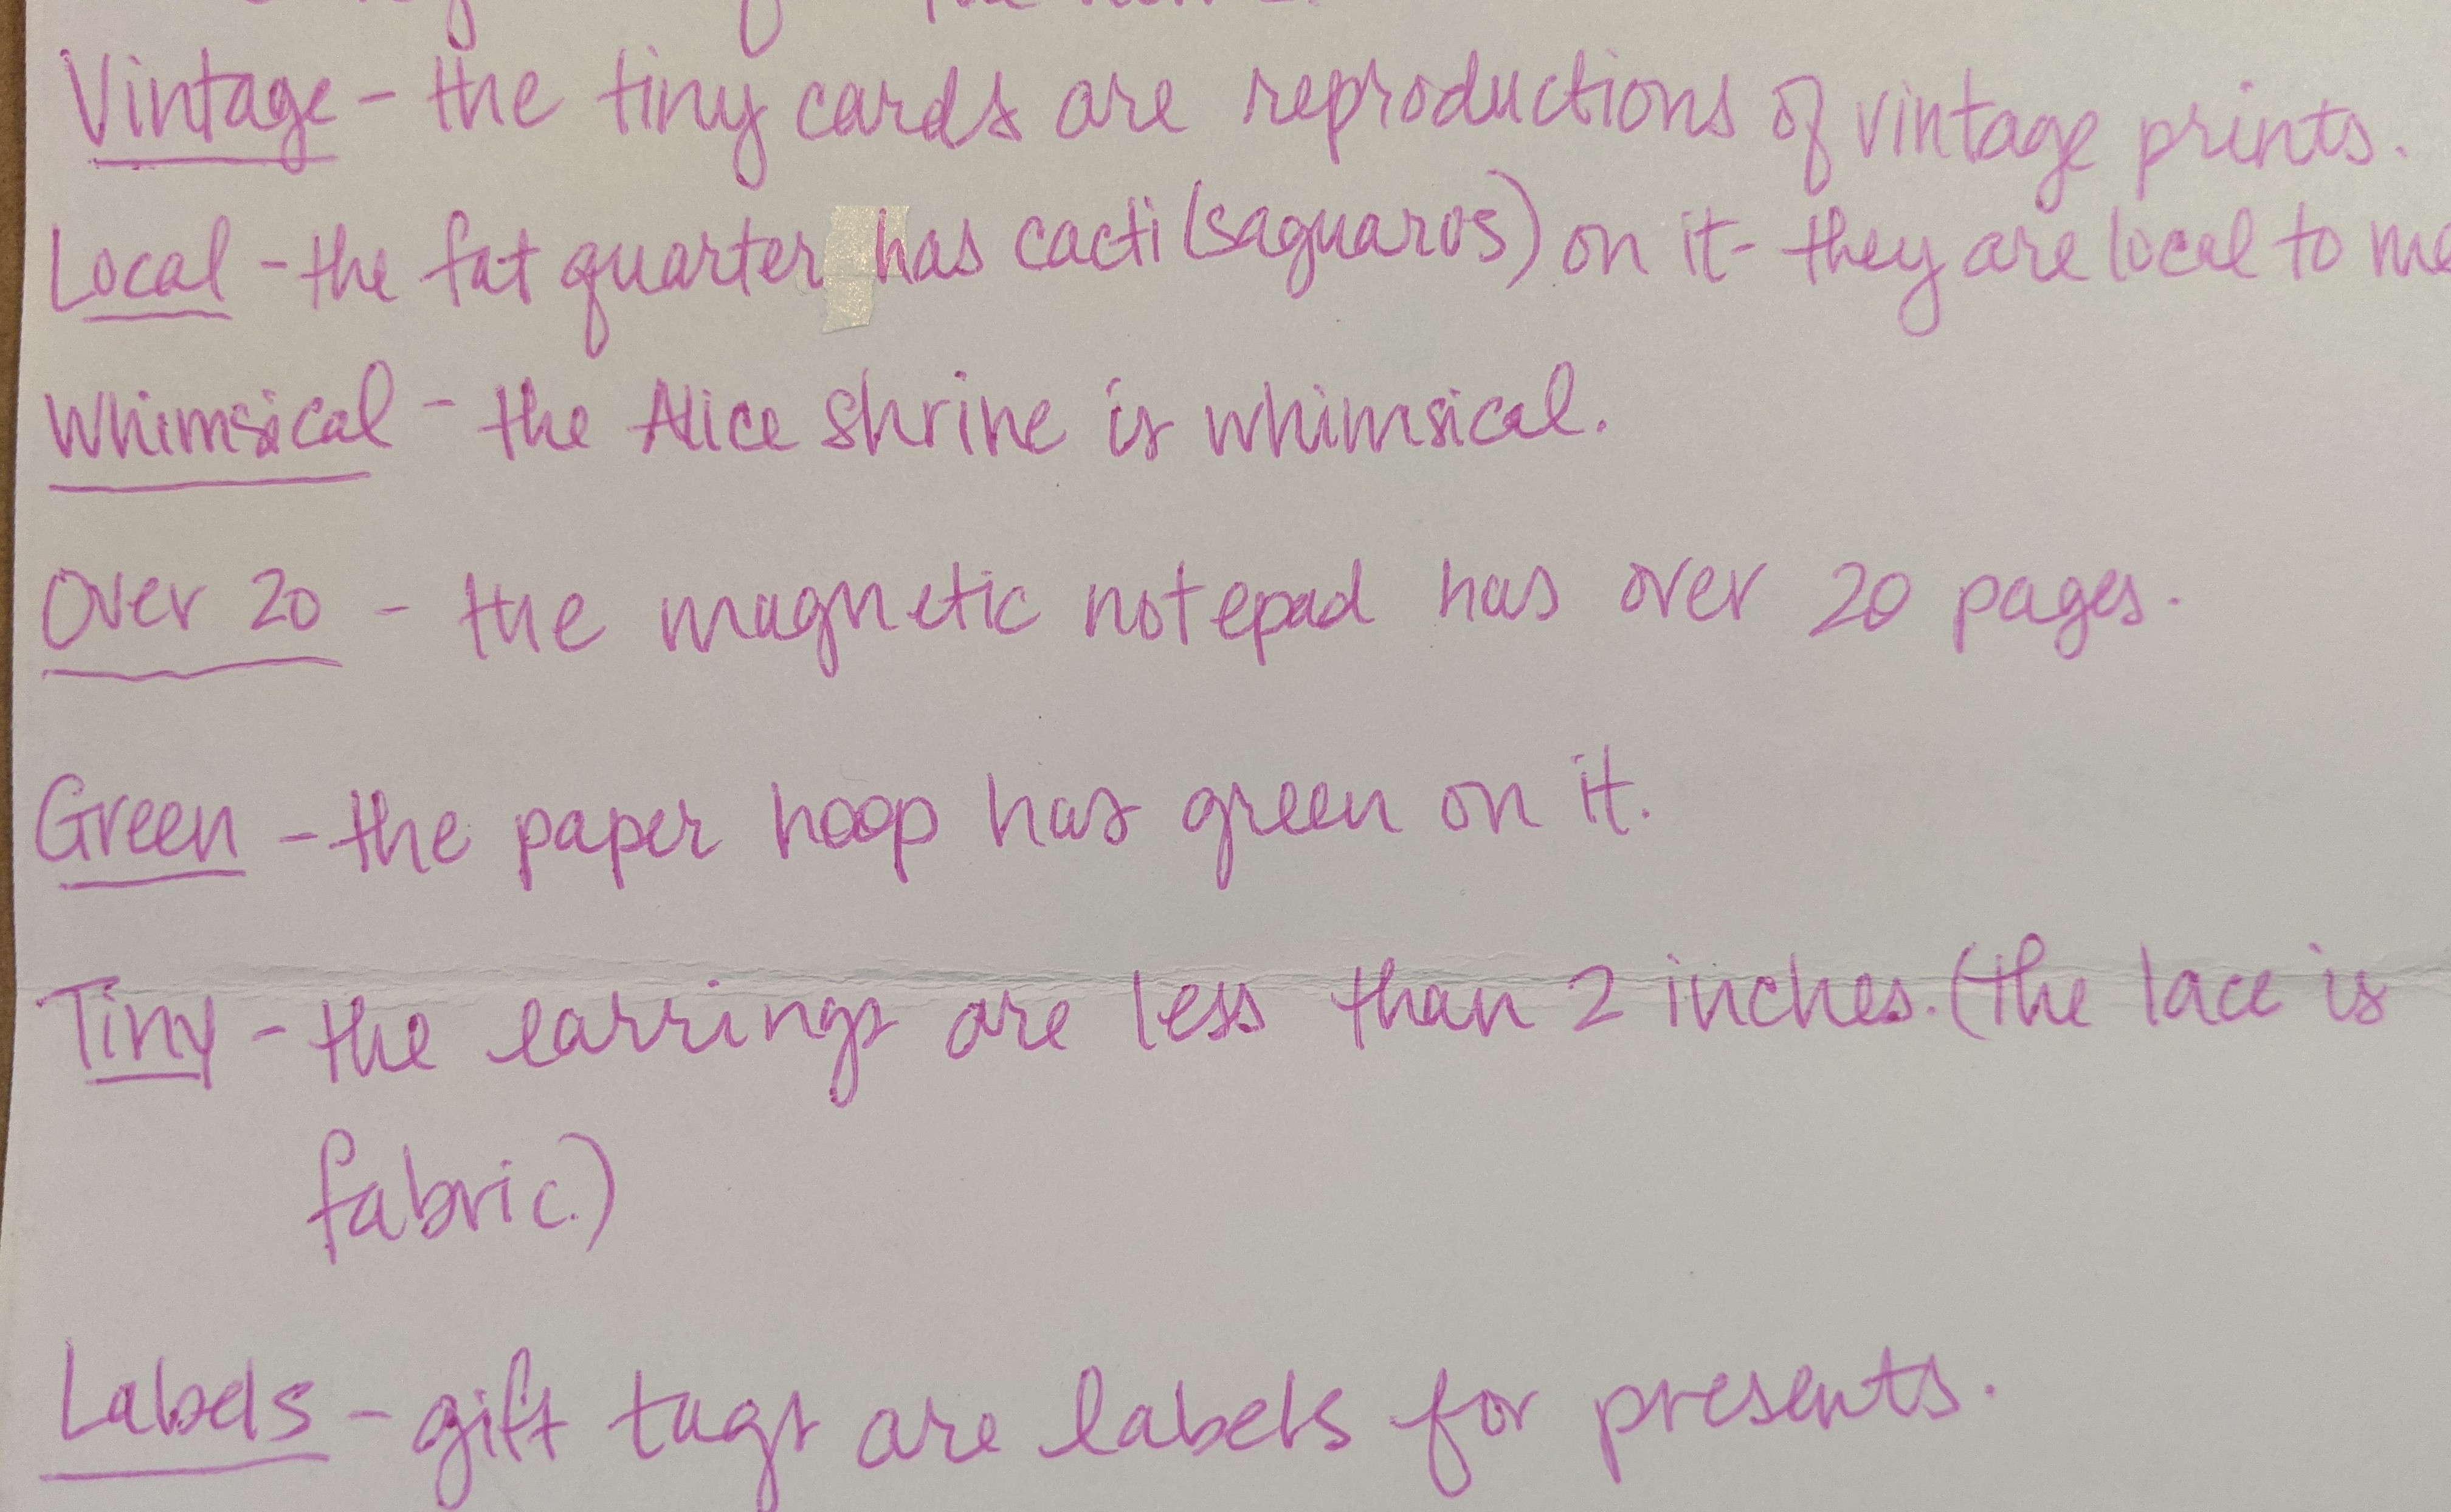 Vintage - the tiny cards are reproductions of vintage prints.
Local - the fat quarter has cacti (saguaros) on it - they are local to me
Whimsical - the Alice shrine is whimsical.
Over 20 - the magnetic notepad has over 20 pages.
Green - the paper hoop has green on it.
Tiny - the earrings are less than 2 inches. (the lace is
fabric.)
Labels - gift tags are labels for presents.